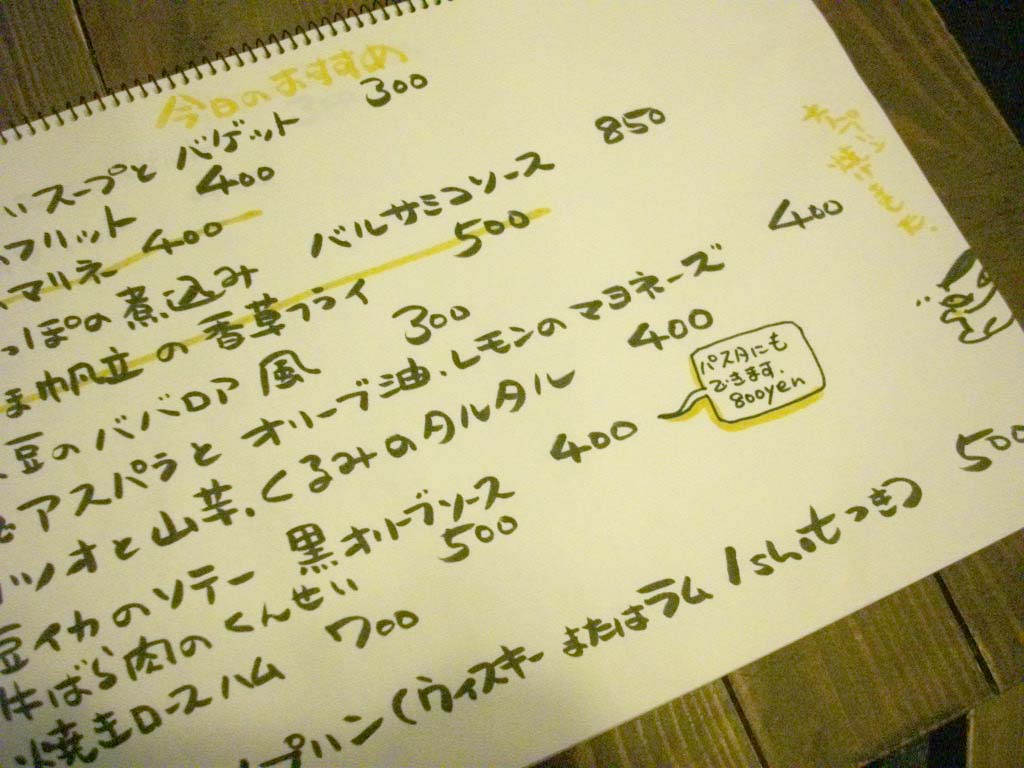 今日のおすすめ
いスープと バゲット 300
フリット 400
マリネ 400
っぽの煮込み バルサミコソース 850
ま帆立の香草フライ 500
豆のババロア風 300
アスパラと オリーブ油、レモンのマヨネーズ 400
ツオと山芋、くるみのタルタル 400
豆イカのソテー 黒オリーブソース 400
パスタにも
できます。
800yen
牛ばら肉のくんせい 500
焼きロースハム 700
プリン(ウィスキーまたはラム 1shotつき) 500